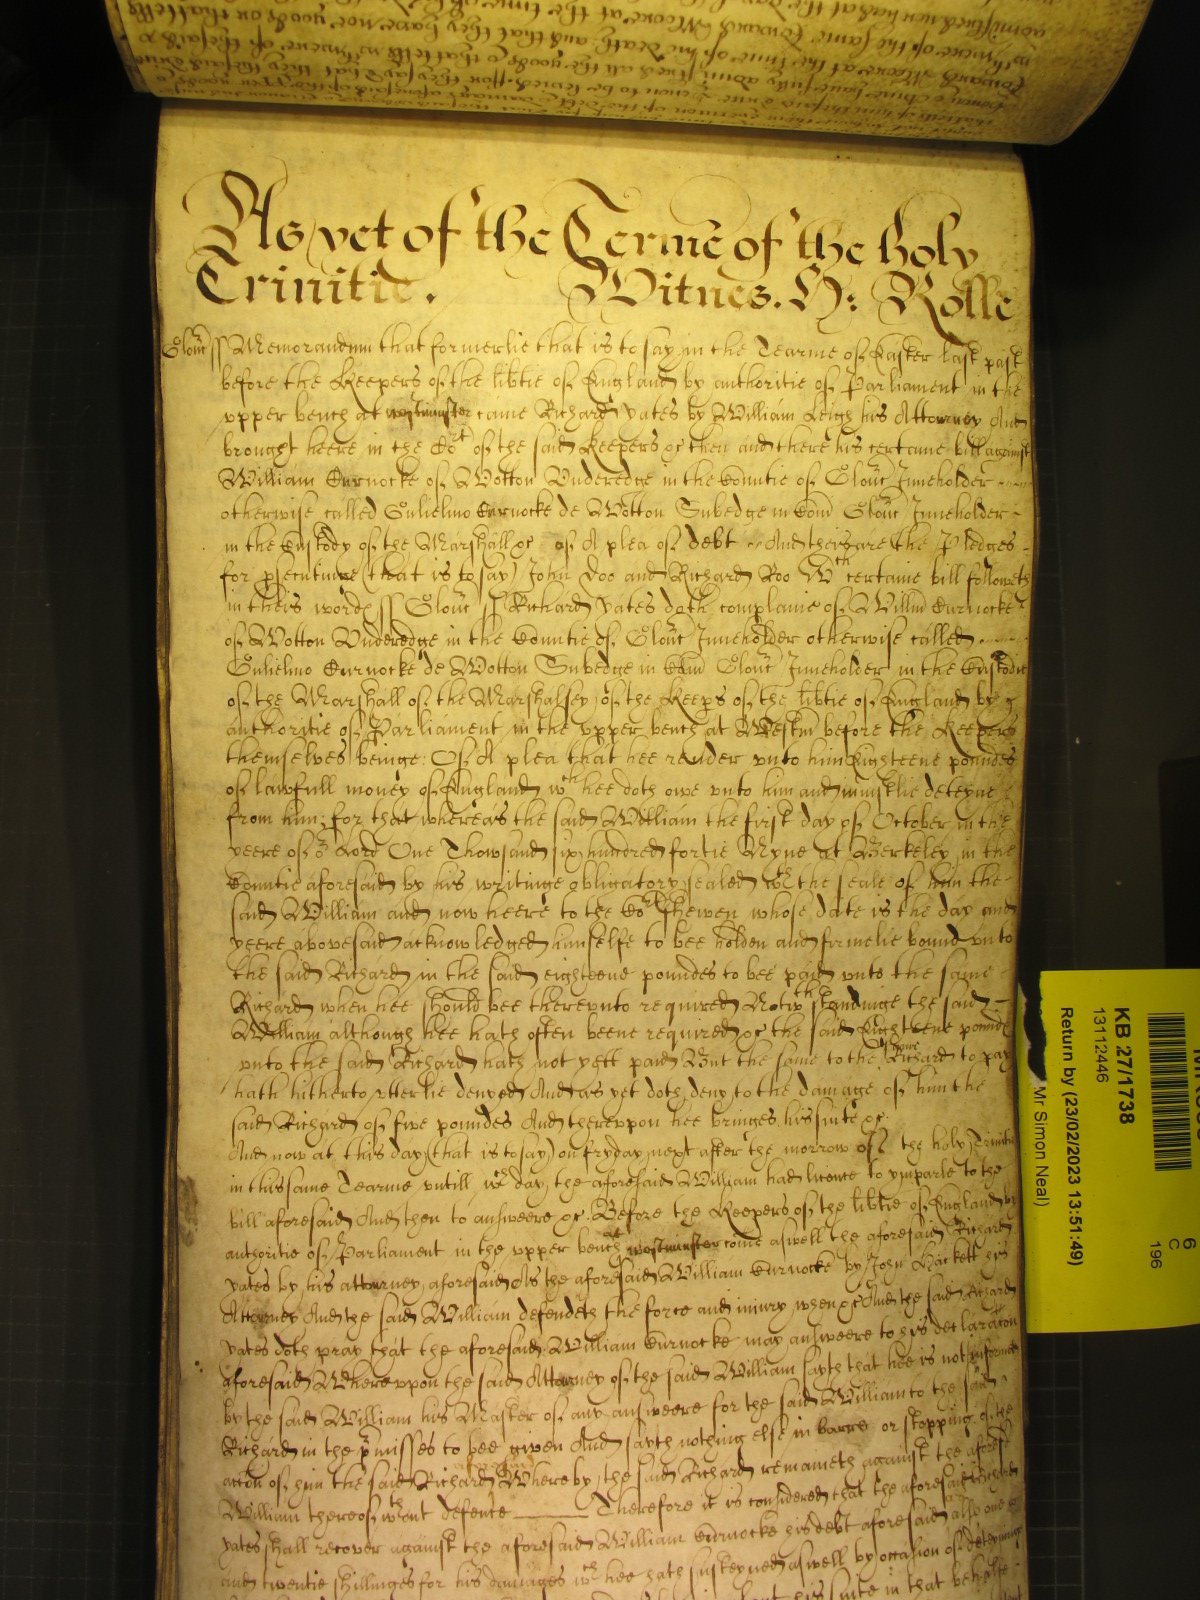 As yet of the Terme of the holy
Trinitie. Witnes. H: Rolle
Glouc ss Memorandum that formerlie that is to say in the Tearme of Easter last past
before the Keepers of the libtie of England by authoritie of Parliament in the
upper bench at westminster came Richard yates by William Leigh his Attorney And
brought heere in the Cort of the said Keepers &c then and there his certaine bill against
William Curnocke of Wotton Underedge in the Countie of Glouc Inneholder
otherwise called Gulielmo Curnocke de Wotton Subedge in Com Glouc Inneholder
in the Custody of the Marshall &c of A plea of debt And theis are the Pledges
for psecutinge (that is to say) John Doo and Richard Roo Wch certaine bill followeth
in theis word ss Glouc ss Richard yates doth complaine of Willm Curnocke
of Wotton Underedge in the Countie of Glouc Inneholder otherwise called
Gulielmo Curnocke de Wotton Subedge in Com Glouc Inneholder in the Custodie
of the Marshall of the Marshalsey of the Keeps of the libtie of England by
authoritie of Parliament in the upper bench at Westm before the Keepers
themselves beinge: Of A plea that hee render unto him Eighteene poundes
of lawfull money of England wch hee doth owe unto him and iniustlie deteyne
from him; for that whereas the said William the first day of October in the
yeere of or Lord One Thowsand six hundred fortie Nyne at Berkeley in the
Countie aforesaid by his writinge obligatory sealed wth the seale of him the
said William and now heere to the Cort shewen whose date is the day and
yeere abovesaid acknowledged himselfe to bee holden and firmelie bound unto
the said Richard in the said eighteene poundes to bee paid unto the same
Richard when hee should bee thereunto required Notwthstandinge the said
William although hee hath often beene required &c the said Eighteene pounde
unto the said Richard hath not yett paid But the same to the Richard to pay
hath hitherto utterlie denyed And as yet doth deny to the damage of him the
said Richard of five poundes And thereupon hee bringes his suite &c.
And now at this day (that is to say) on fryday next after the morrow of the holy Trinitie
in this same Tearme untill wch day the aforesaid William had licence to ymparle to the
bill aforesaid And then to answeere &c. Before the Keepers of the libtie of England by
authoritie of Parliament in the upper bench at westminster come aswell the aforesaid Richard
yates by his attorney aforesaid As the aforesaid William Curnocke by John Hackett his
Attorney And the said William defendeth the force and iniury when &c And the said Richard
yates doth pray that the aforesaid William Curnocke may answeere to his declaracon
aforesaid Whereupon the said Attorney of the said William sayth that hee is not informed
by the said William his Master of any answeere for the said William to the said
Richard in the pmisses to bee given And sayth nothing else in barre or stopping of the
accon of him the said Richard Whereby the said Richard remaineth against the aforesd
William thereof wthout defence Therefore it is considered that the aforesaid Richard
yates shall recover against the aforesaid William Curnocke his debt aforesaid also one
and twentie shillinges for his damages wch hee hath susteyned aswell by occasion of deteyninge
his suite in that behalfe
KB 27/1738
13112446
Return by (23/02/2023 13:51:49)
Mr Simon Neal)
6
C
196